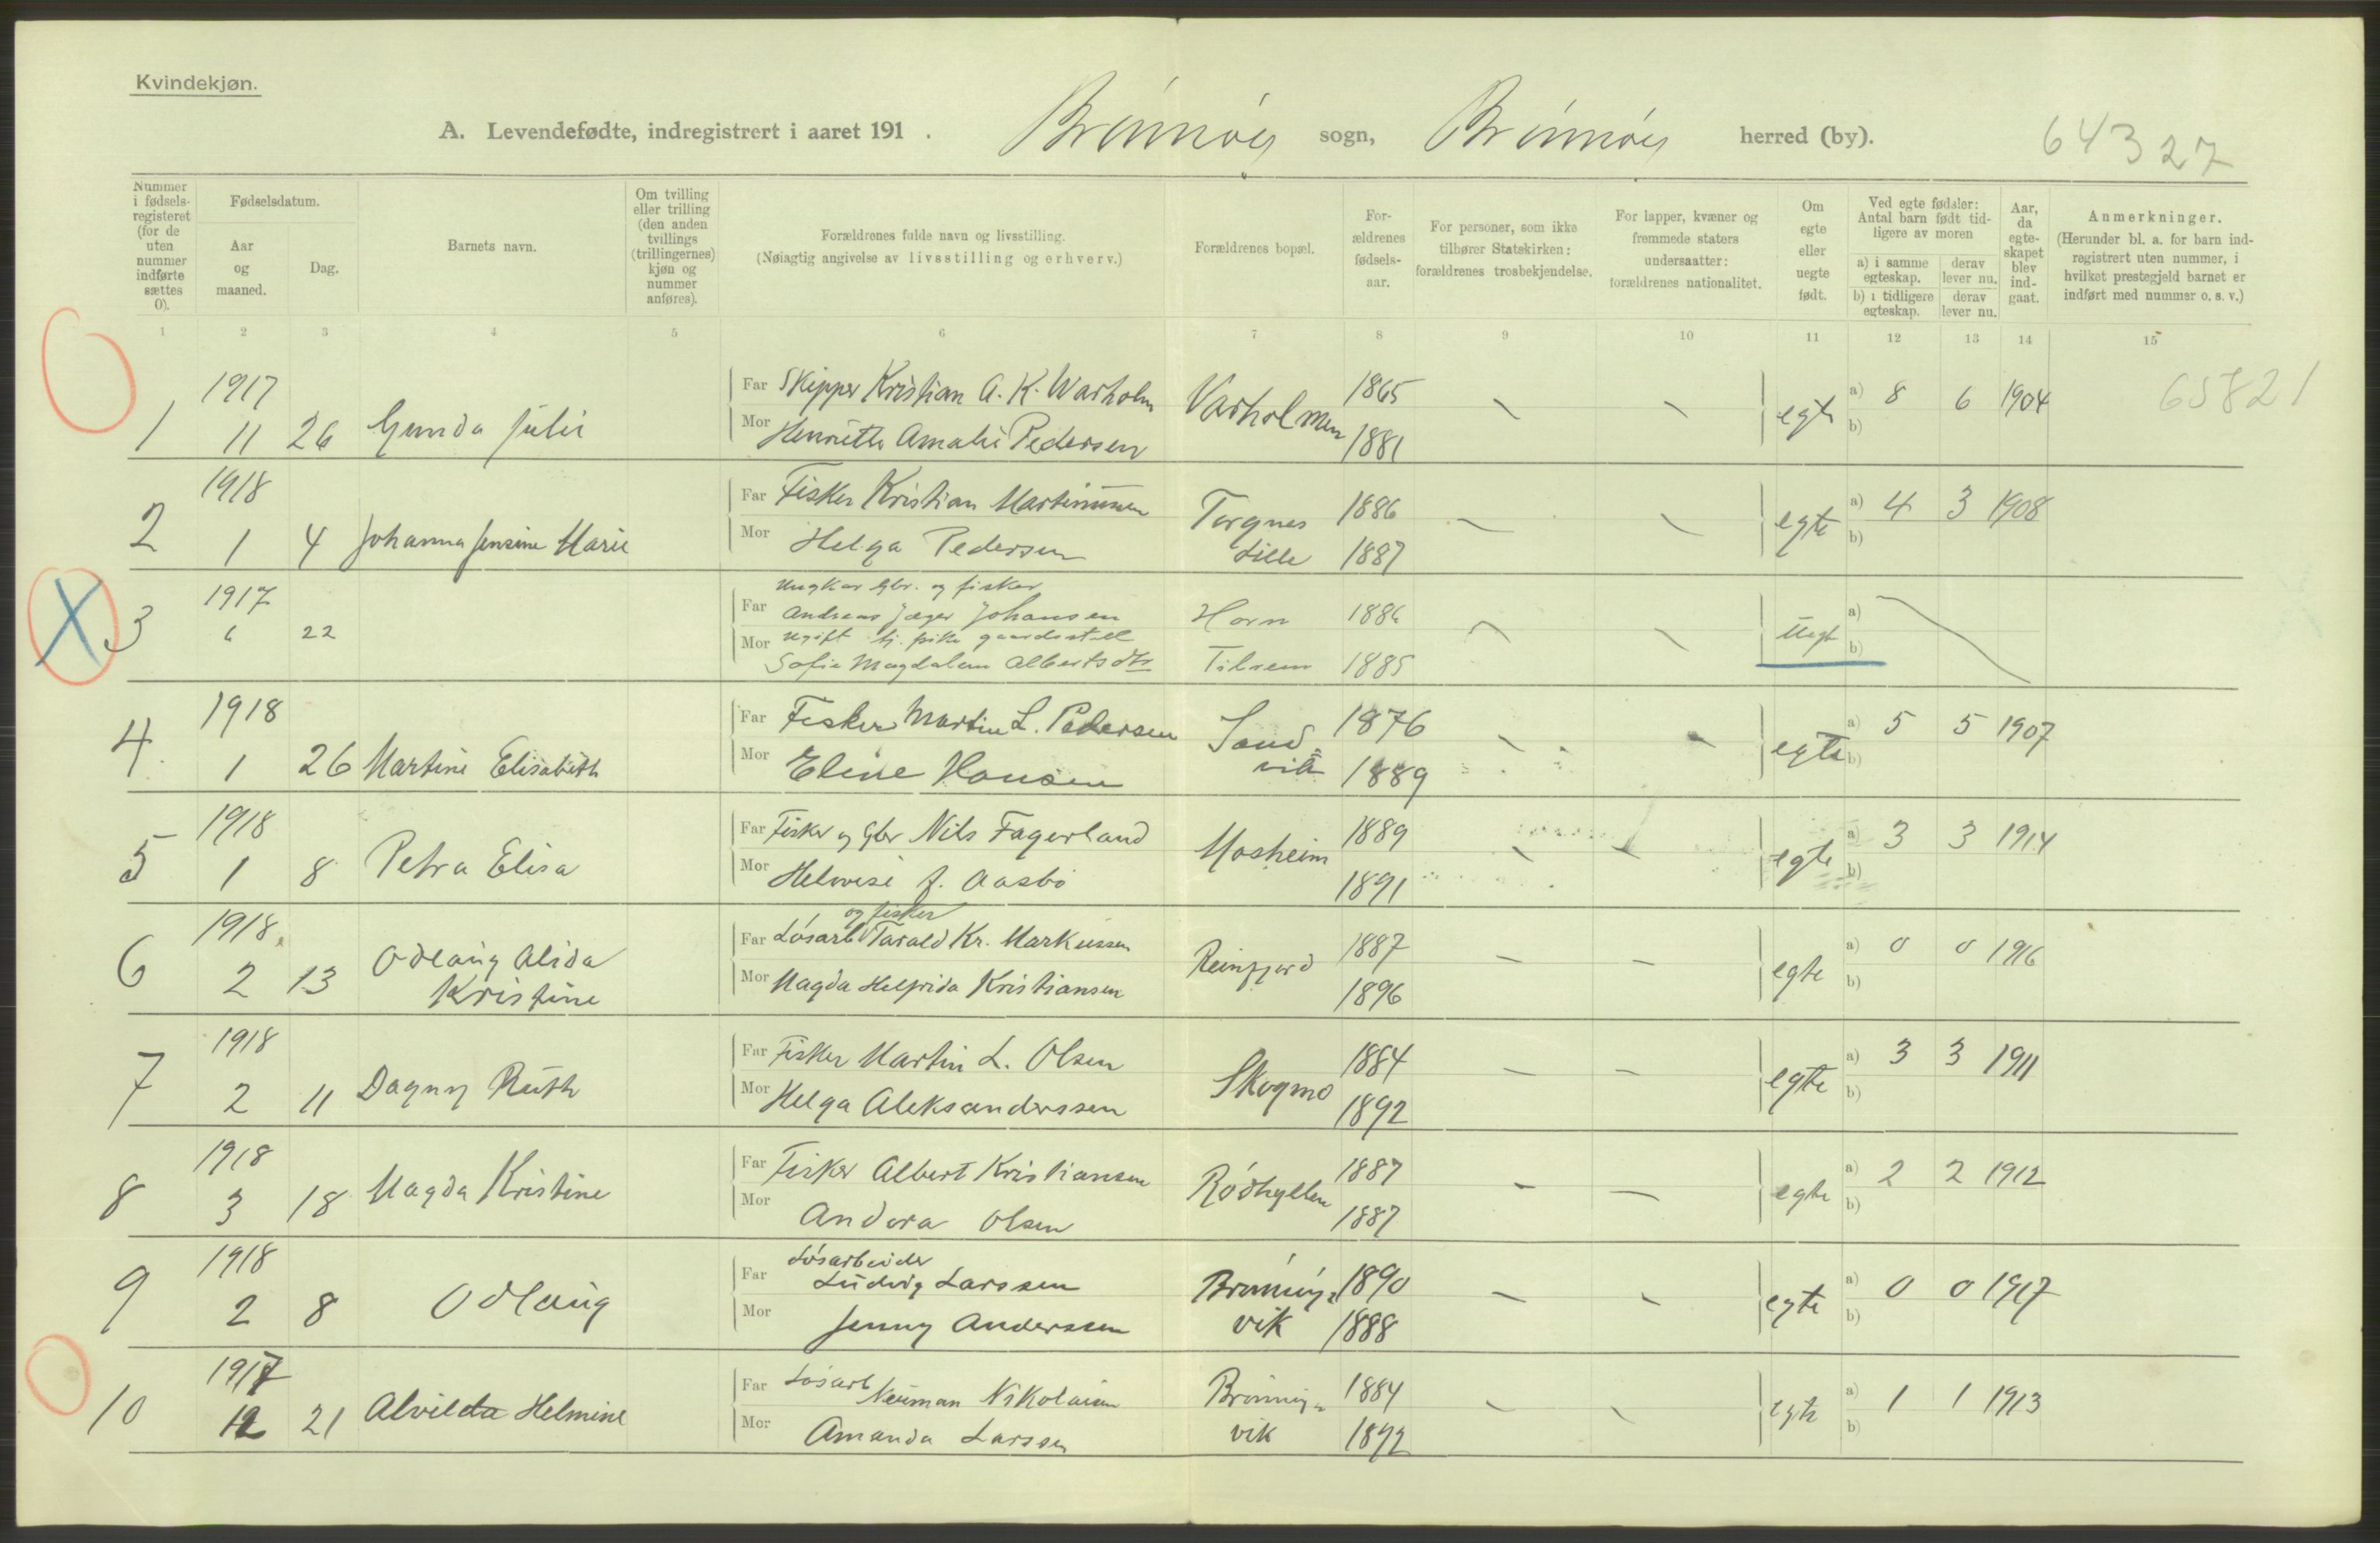 Kvindekjøn.
A. Levendefødte, indregistrert i aaret 191 . Brønnøy sogn, Brønnøy herred (by). 64327
Nummer i fødselsregisteret (for de uten nummer indførte sættes 0).
Fødselsdatum.
Aar og maaned.
Dag.
Barnets navn.
Om tvilling eller trilling (den anden tvillings (trillingernes) kjøn og nummer anføres).
Forældrenes fulde navn og livsstilling.
(Nøiagtig angivelse av livsstilling og erhverv.)
Forældrenes bopæl.
Forældrenes fødselsaar.
For personer, som ikke tilhører Statskirken: forældrenes trosbekjendelse.
For lapper, kvæner og fremmede staters undersaatter: forældrenes nationalitet.
Om egte eller uegte født.
Ved egte fødsler: Antal barn født tidligere av moren
a) i samme egteskap. derav lever nu.
b) i tidligere egteskap. derav lever nu.
Aar, da egteskapet blev indgaat.
Anmerkninger.
(Herunder bl. a. for barn indregistrert uten nummer, i hvilket prestegjeld barnet er indført med nummer o. s. v.)
1 2 3 4 5 6 7 8 9 10 11 12 13 14 15
1917 Far Skipper Kristian A. K. Warholm Varholmen 1865 a) 8 6 1904 65821
1 11 26 Gunda Julie Mor Henriette Amalie Pedersen 1881 egte b)
1918 Far Fisker Kristian Martinussen Torgnes 1886 a) 4 3 1908
2 1 4 Johanna Jensine Marie Mor Helga Pedersen Lille 1887 egte b)
1917 Ungkar Gbr. og fisker
3 6 22 Far Andreas Jæger Johansen Horn 1886 Uegte a)
Mor Ugift tj. pike gaardsstell
Sofie Magdalene Albertsdtr Tilrem 1885 b)
1918 Far Fisker Martin L. Pedersen Sand= 1876 a) 5 5 1907
4 1 26 Martine Elisabeth Mor Eline Hansen vik 1889 egte b)
1918 Far Fisker og Gbr Nils Fagerland Mosheim 1889 a) 3 3 1914
5 1 8 Petra Elisa Mor Helovise f. Aasbø 1891 egte b)
1918 og fisker
Far Løsarb Tarald Kr. Markussen Reinfjord 1887 a) 0 0 1916
6 2 13 Odlaug Alida Kristine Mor Magda Helfrida Kristiansen 1896 egte b)
1918 Far Fisker Martin L. Olsen Skogmo 1884 a) 3 3 1911
7 2 11 Dagny Ruth Mor Helga Aleksanderssen 1892 egte b)
1918 Far Fisker Albert Kristiansen Rødhyllen 1887 a) 2 2 1912
8 3 18 Magda Kristine Mor Andora Olsen 1887 egte b)
1918 Løsarbeider
Far Ludvig Larssen Brønnøy= 1890 a) 0 0 1917
9 2 8 Odlaug Mor Jenny Anderssen vik 1888 egte b)
1917 Far Løsarb Neuman Nikolaisen Brønnøy= 1884 a) 1 1 1913
10 12 21 Alvilda Helmine Mor Amanda Larssen vik 1892 egte b)